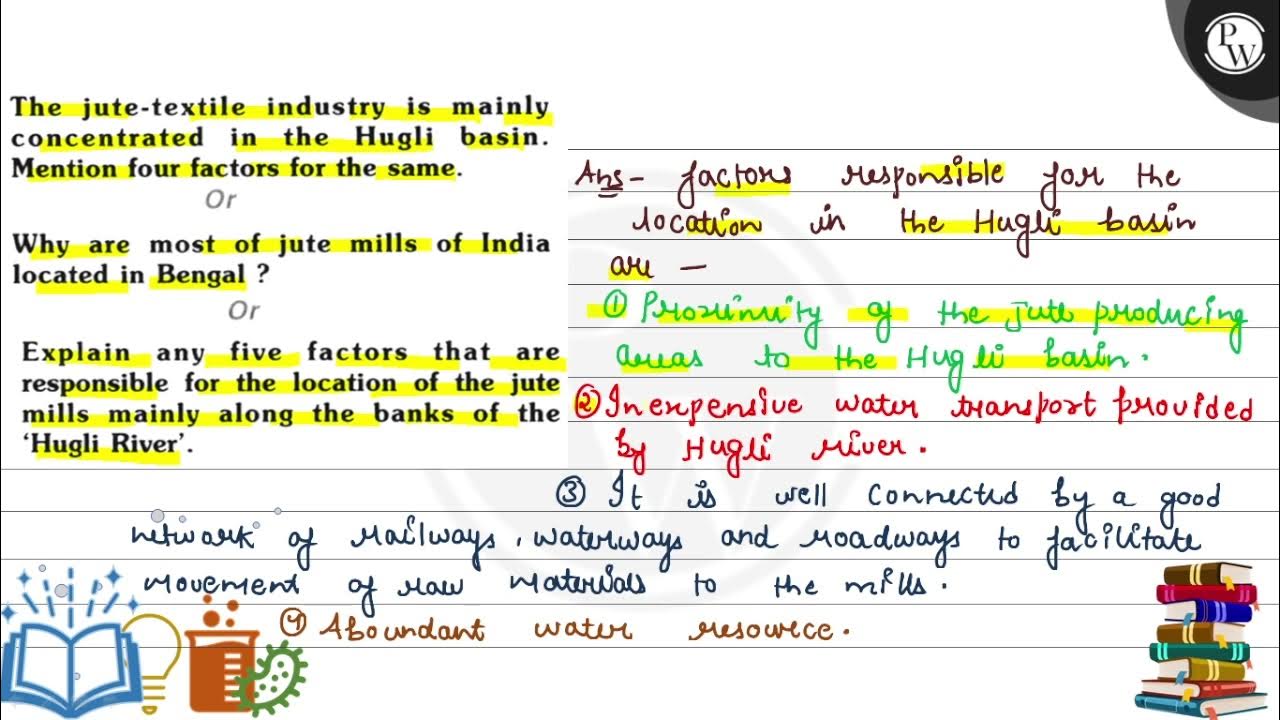 PW
The jute-textile industry is mainly
concentrated in the Hugli basin.
Mention four factors for the same.
Or
Why are most of jute mills of India
located in Bengal ?
Or
Explain any five factors that are
responsible for the location of the jute
mills mainly along the banks of the
‘Hugli River’.
Ans - factors responsible for the
location in the Hugli basin
are —
① Proximity of the jute producing
areas to the Hugli basin.
② Inexpensive water transport provided
by Hugli river.
③ It is well connected by a good
network of railways, waterways and roadways to facilitate
movement of raw materials to the mills.
④ Aboundant water resource.